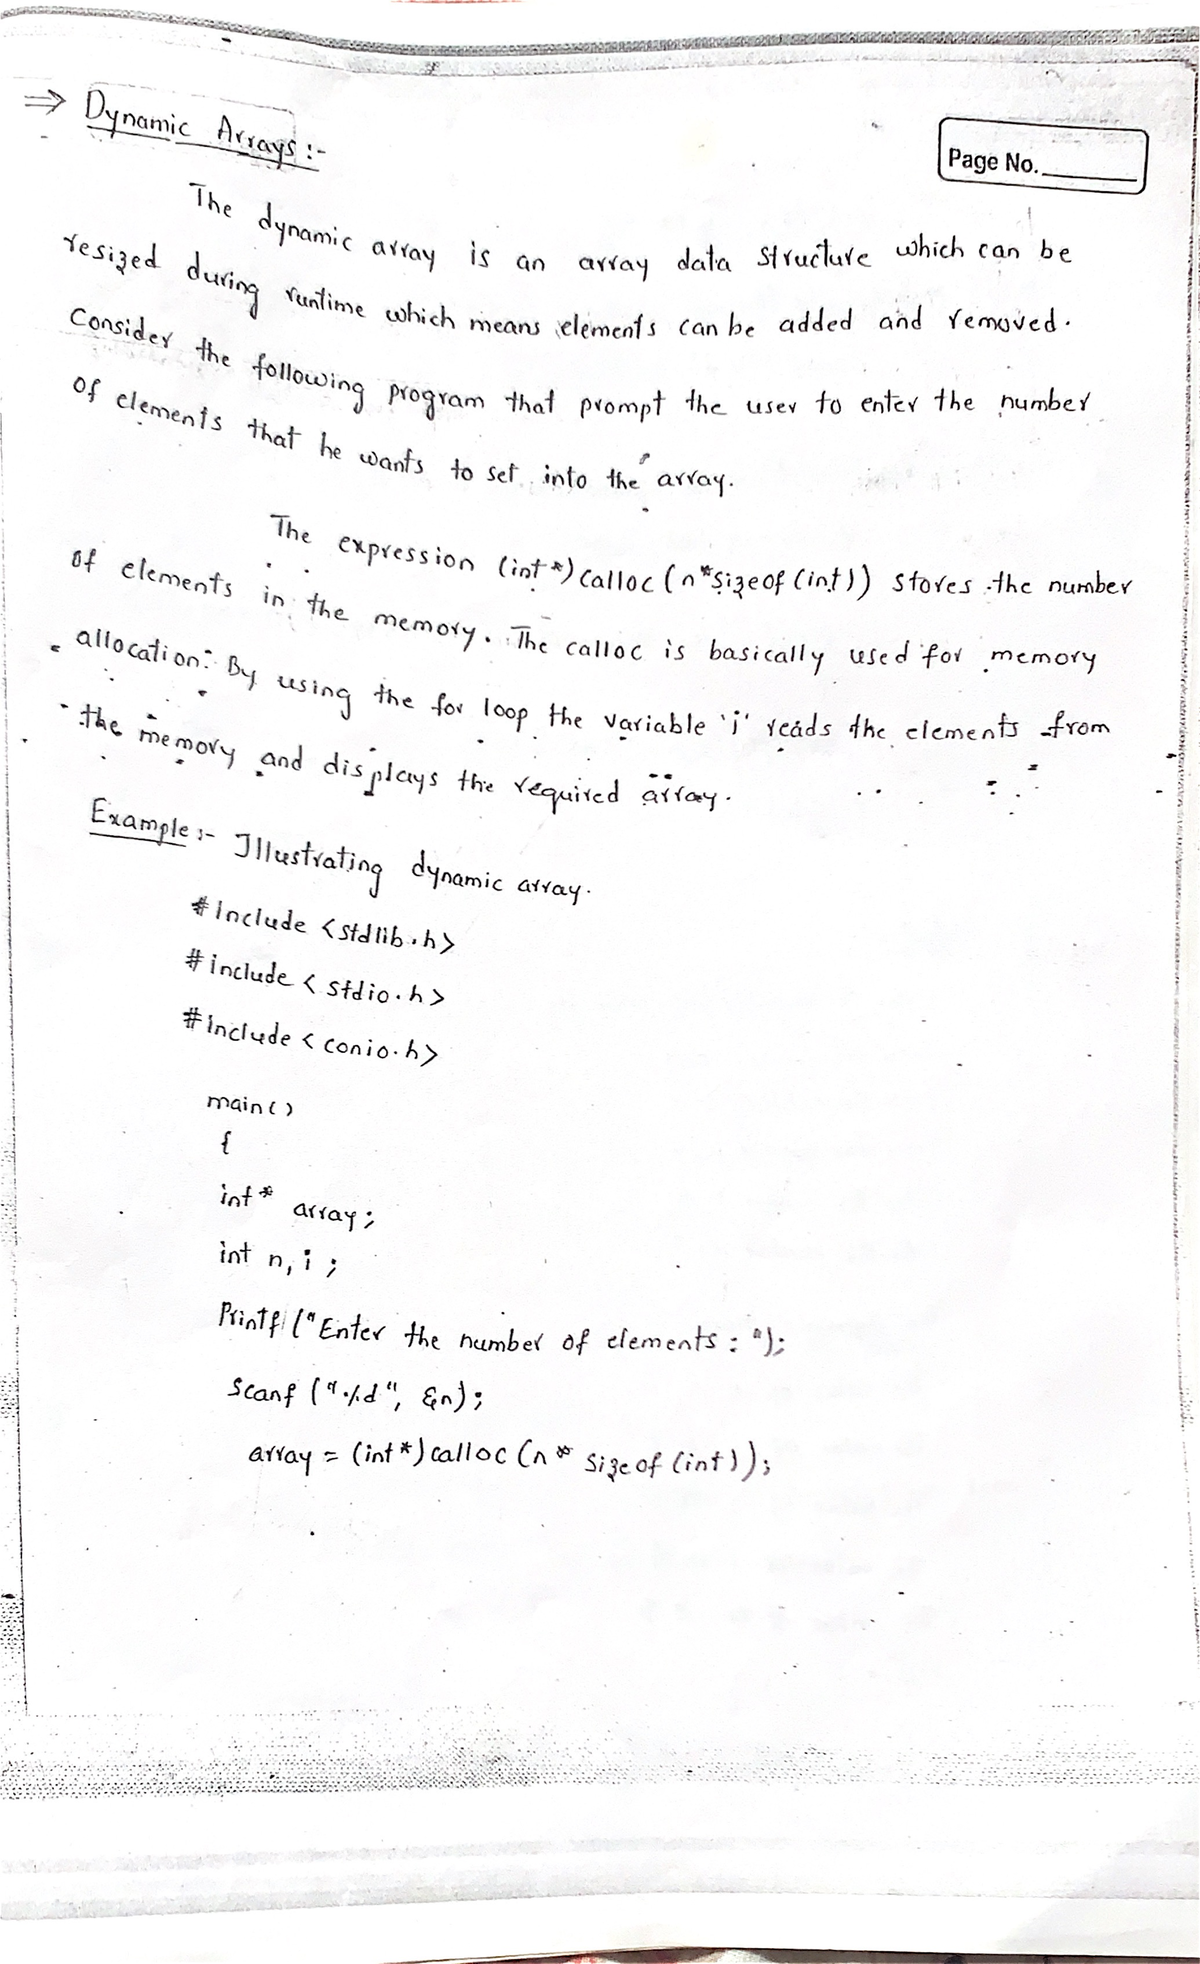 ⇒ Dynamic Arrays :-
Page No.
The dynamic array is an array data structure which can be
resized during runtime which means elements can be added and removed.
Consider the following program that prompt the user to enter the number
of elements that he wants to set into the array.
The expression (int*) calloc (n*sizeof (int)) stores the number
of elements in the memory. The calloc is basically used for memory
allocation. By using the for loop the variable 'i' reads the elements from
the memory and displays the required array.
Example :- Illustrating dynamic array.
#include <stdlib.h>
#include < stdio.h>
#include < conio.h>
main()
{
int* array;
int n, i ;
Printf ("Enter the number of elements : ");
Scanf ("%d", &n);
array = (int*) calloc (n * sizeof (int));